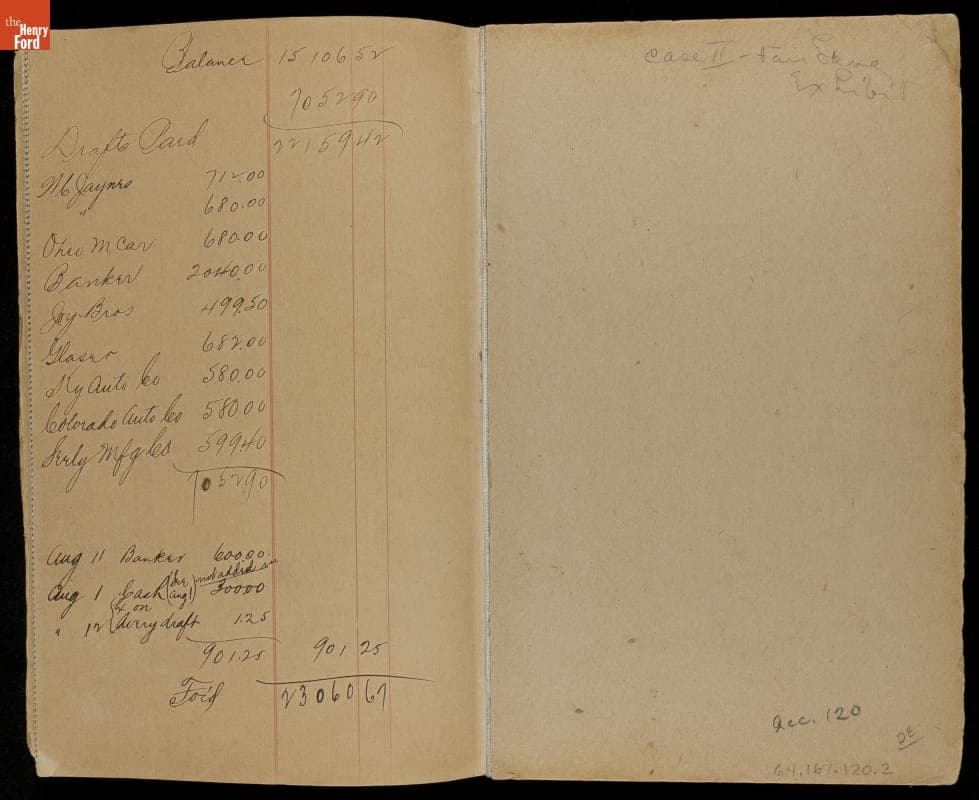 the
Henry
Ford
Balance 15 106 52
7052 90
22159 42
Drafts Paid
W C Jaynes 712.00
" 680.00
Ohio M Car 680.00
Banker 2040.00
Joy Bros 499.50
Glaser 682.00
Ky Auto Co 580.00
Colorado Auto Co 580 00
Mfg Co 599.40
7052 90
Aug 11 Banker 600.00
Aug 1 Cash (see Aug 1) not added in 300.00
" 12 {Ex on Avery draft 1.25
901.25 901 25
For'd 23060 67
Case II - Fair Lane
Exhibit
acc. 120
DE
64.167.120.2